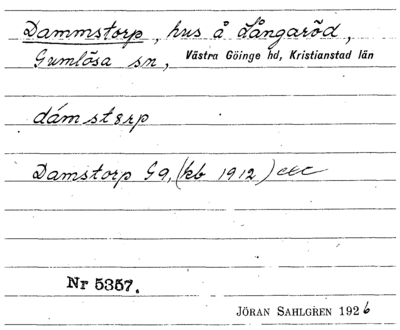 Dammstorp, hus å Långaröd,
Gumlösa sn, Västra Göinge hd, Kristianstad län
dámstɛrp
Damstorp G9, (kb 1912) etc
Nr 5357.
JÖRAN SAHLGREN 1926